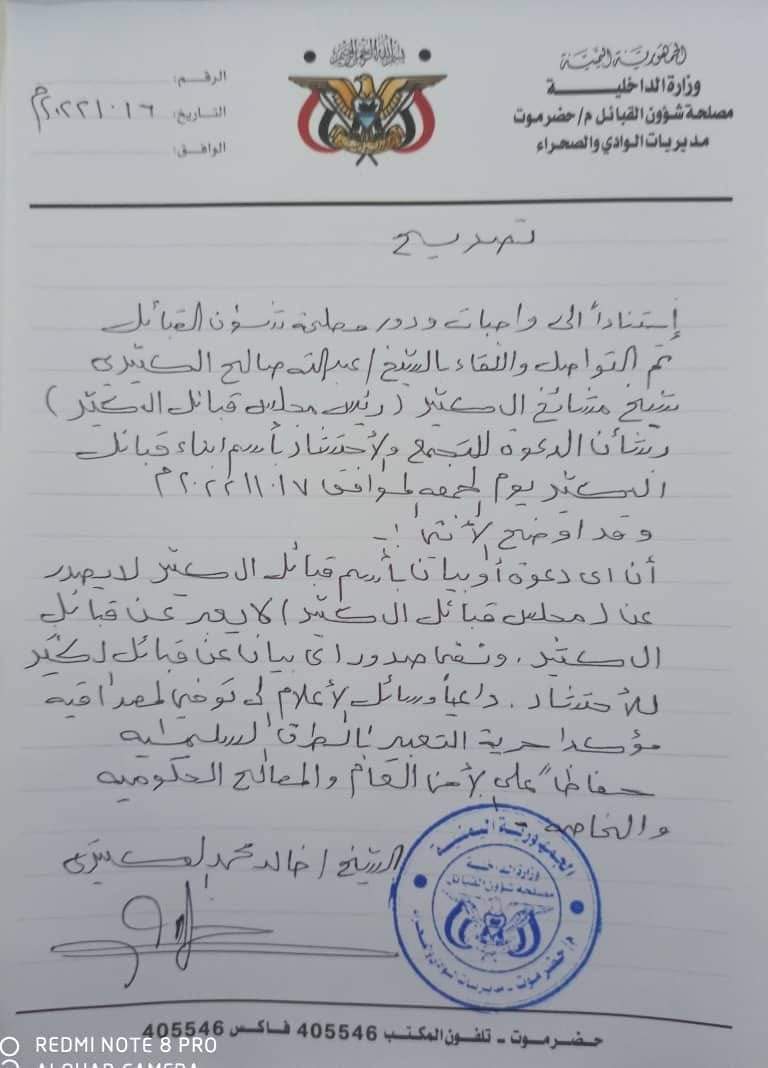 بسم الله الرحمن الرحيم
الجمهورية اليمنية
وزارة الداخلية
مصلحة شؤون القبائل م/حضرموت
مديريات الوادي والصحراء
الرقم:
التاريخ: ١٦/١٠/٢٠٢٢م
الوافق:
تصريح
إستناداً الى واجبات ودور مصلحة شؤون القبائل
تم التواصل واللقاء بالشيخ/عبدالله صالح الكثيري
شيخ مشائخ ال كثير (رئيس مجلس قبائل ال كثير)
بشأن الدعوة للتجمع ولأحتشاد بأسم ابناء قبائل
ال كثير يوم لجمعه لموافق ١٧/١٠/٢٠٢٢م
وقد اوضح لأتي :-
أن اي دعوة أو بيان بأسم قبائل ال كثير لايصدر
عن (مجلس قبائل ال كثير) لا يعبر عن قبائل
ال كثير. ونفى صدور اي بيان عن قبائل كثير
للأحتشاد. داعياً وسائل لأعلام لى توخي لمصداقيه
مؤكدا حرية التعبير بالطرق السلميه
حفاظاً على لأمن العام والمصالح الحكوميه
والخاصه
الشيخ/خالد محمد لكثيري
الجمهورية اليمنية
وزارة الداخلية
مصلحة شؤون القبائل
م/حضرموت - مديريات الوادي والصحراء
حضرموت - تلفون المكتب 405546 فاكس 405546
REDMI NOTE 8 PRO
AI QUAD CAMERA